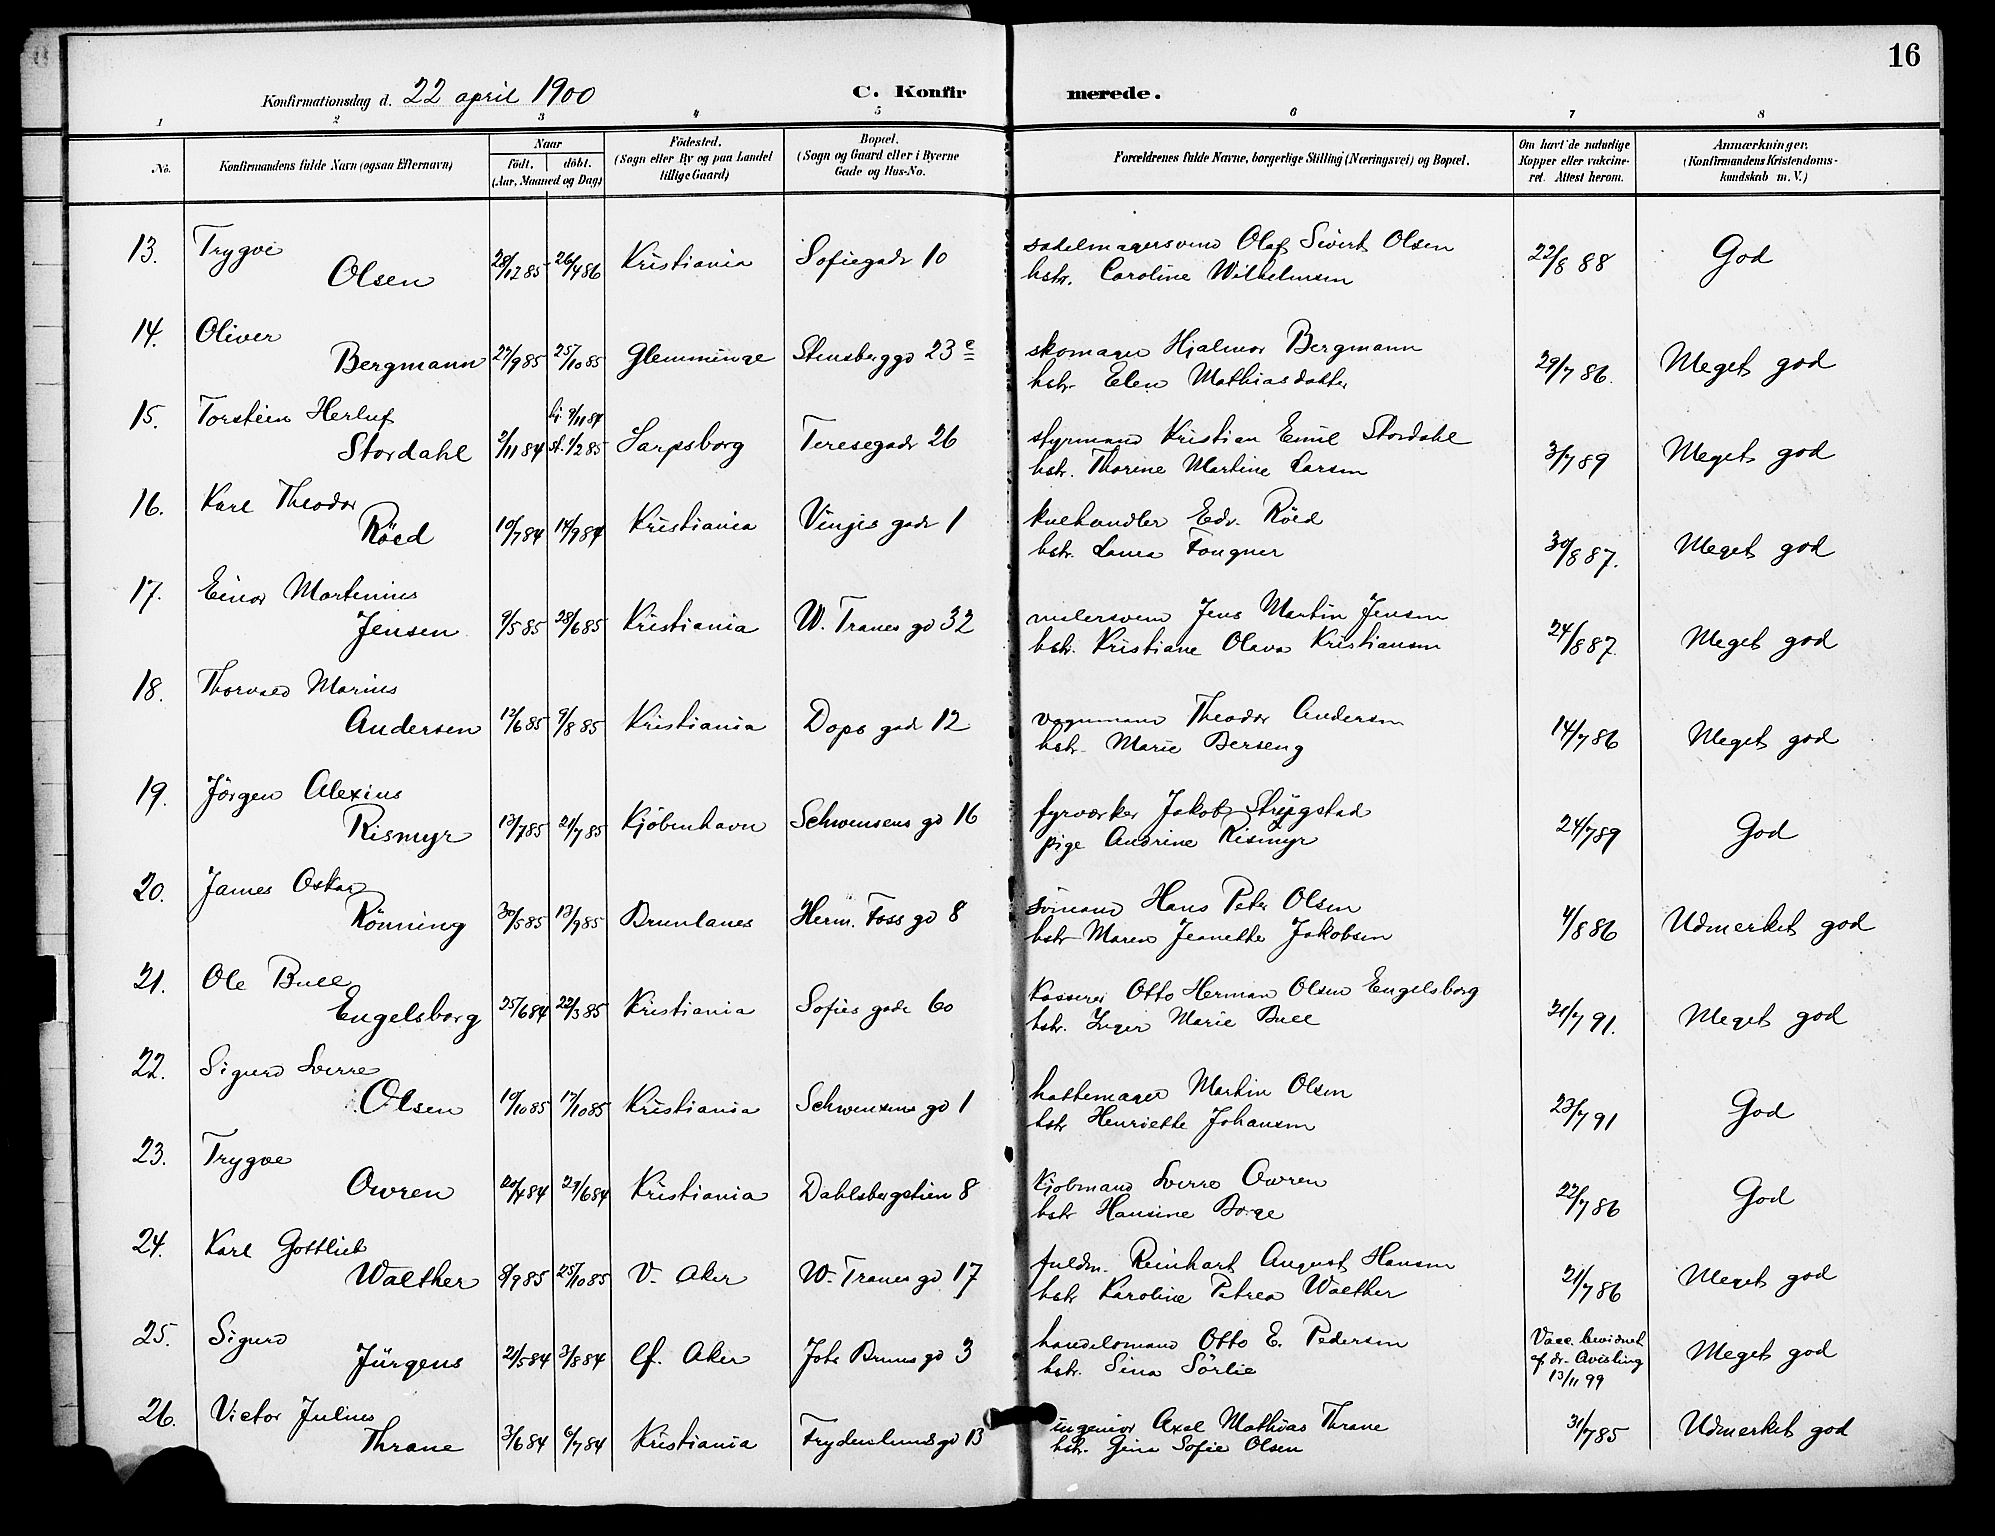 16
Konfirmationsdag d. 22 april 1900 C. Konfirmerede.
1 2 3 4 5 6 7 8
No. Konfirmandens fulde Navn (ogsaa Efternavn) Naar født. døbt. (Aar, Maaned og Dag) Fødested. (Sogn eller By og paa Landet tillige Gaard) Bopæl. (Sogn og Gaard eller i Byerne Gade og Hus-No. Forældrenes fulde Navne, borgerlige Stilling (Næringsvei) og Bopæl. Om havt de naturlige Kopper eller vakcineret. Attest herom. Anmærkninger. (Konfirmandens Kristendomskundskab m. V.)
13. Trygve Olsen 28/12 85 26/4 86 Kristiania Sofiegade 10 sadelmagersvend Olaf Sivert Olsen 22/8 88 God
bstr. Caroline Wilhelmsen
14. Oliver Bergmann 22/9 85 25/10 85 Glemminge Stensberggd 23 c skomager Hjalmar Bergmann 29/7 86. Meget god
hstr. Elen Mathiasdatter
15. Torstein Herluf Stordahl 2/11 84 hj. 9/11 84 st. 1/2 85 Sarpsborg Teresegade 26 styrmand Kristian Emil Stordahl 3/7 89 Meget god
hstr. Thorine Martine Larsen
16. Karl Theodor Röed 10/7 84 14/9 84 Kristiania Vinjes gade 1 kulhandler Edv. Röed 30/8 87. Meget god
hstr. Laura Fougner
17. Einar Martinius Jensen 9/5 85 28/6 85 Kristiania W. Tranes gd 32 malersvend Jens Martin Jensen 24/8 87. Meget god
hstr. Kristiane Olava Kristiansen
18. Thorvald Marius Andersen 12/6 85 9/8 85 Kristiania Dops gade 12 vognmand Theodor Andersen 14/7 86 Meget god
hstr. Marie Berseng
19. Jörgen Alexius Rismyr 13/7 85 21/7 85 Kjøbenhavn Schwensens gd 16 fyrværker Jakob Strygstad 24/7 89 God
pige Andrine Rismyr
20. James Oskar Rönning 30/5 85 13/9 85 Brunlanes Herm. Foss gd 8 sömand Hans Peter Olsen 4/8 86 Udmerket god
hstr Maren Jeanette Jakobsen
21. Ole Bull Engelsborg 25/6 84 22/3 85 Kristiania Sofies gade 60 Kasserer Otto Herman Olsen Engelsborg 31/7 91. Meget god
hstr. Inger Marie Bull
22. Sigurd Sverre Olsen 10/10 85 17/10 85 Kristiania Schwensens gd 1 hattemager Martin Olsen 23/7 91 God
hstr Henriette Johansen
23. Trygve Owren 20/4 84 29/6 84 Kristiania Dahlsbergstien 8 Kjöbmand Sverre Owren 22/7 86 God
hstr Hansine Borge
24. Karl Gottlieb Walther 8/9 85 25/10 85 V. Aker W. Tranes gd 17 fuldm. Reinhart August Hansen 21/7 86 Meget god
hstr Karoline Petrea Walther
25. Sigurd Jürgens 21/5 84 3/8 84 Gf. Aker Johs Bruns gd 3 handelsmand Otto E. Pedersen Vacc. bevidnet af dr. Qvisling 13/11 99 Meget god
hstr. Sina Sörlie
26. Victor Julius Thrane 3/6 84 6/7 84 Kristiania Frydenlunds gd 13 ingeniör Axel Mathias Thrane 31/7 85 Udmerket god
hstr. Gina Sofie Olsen